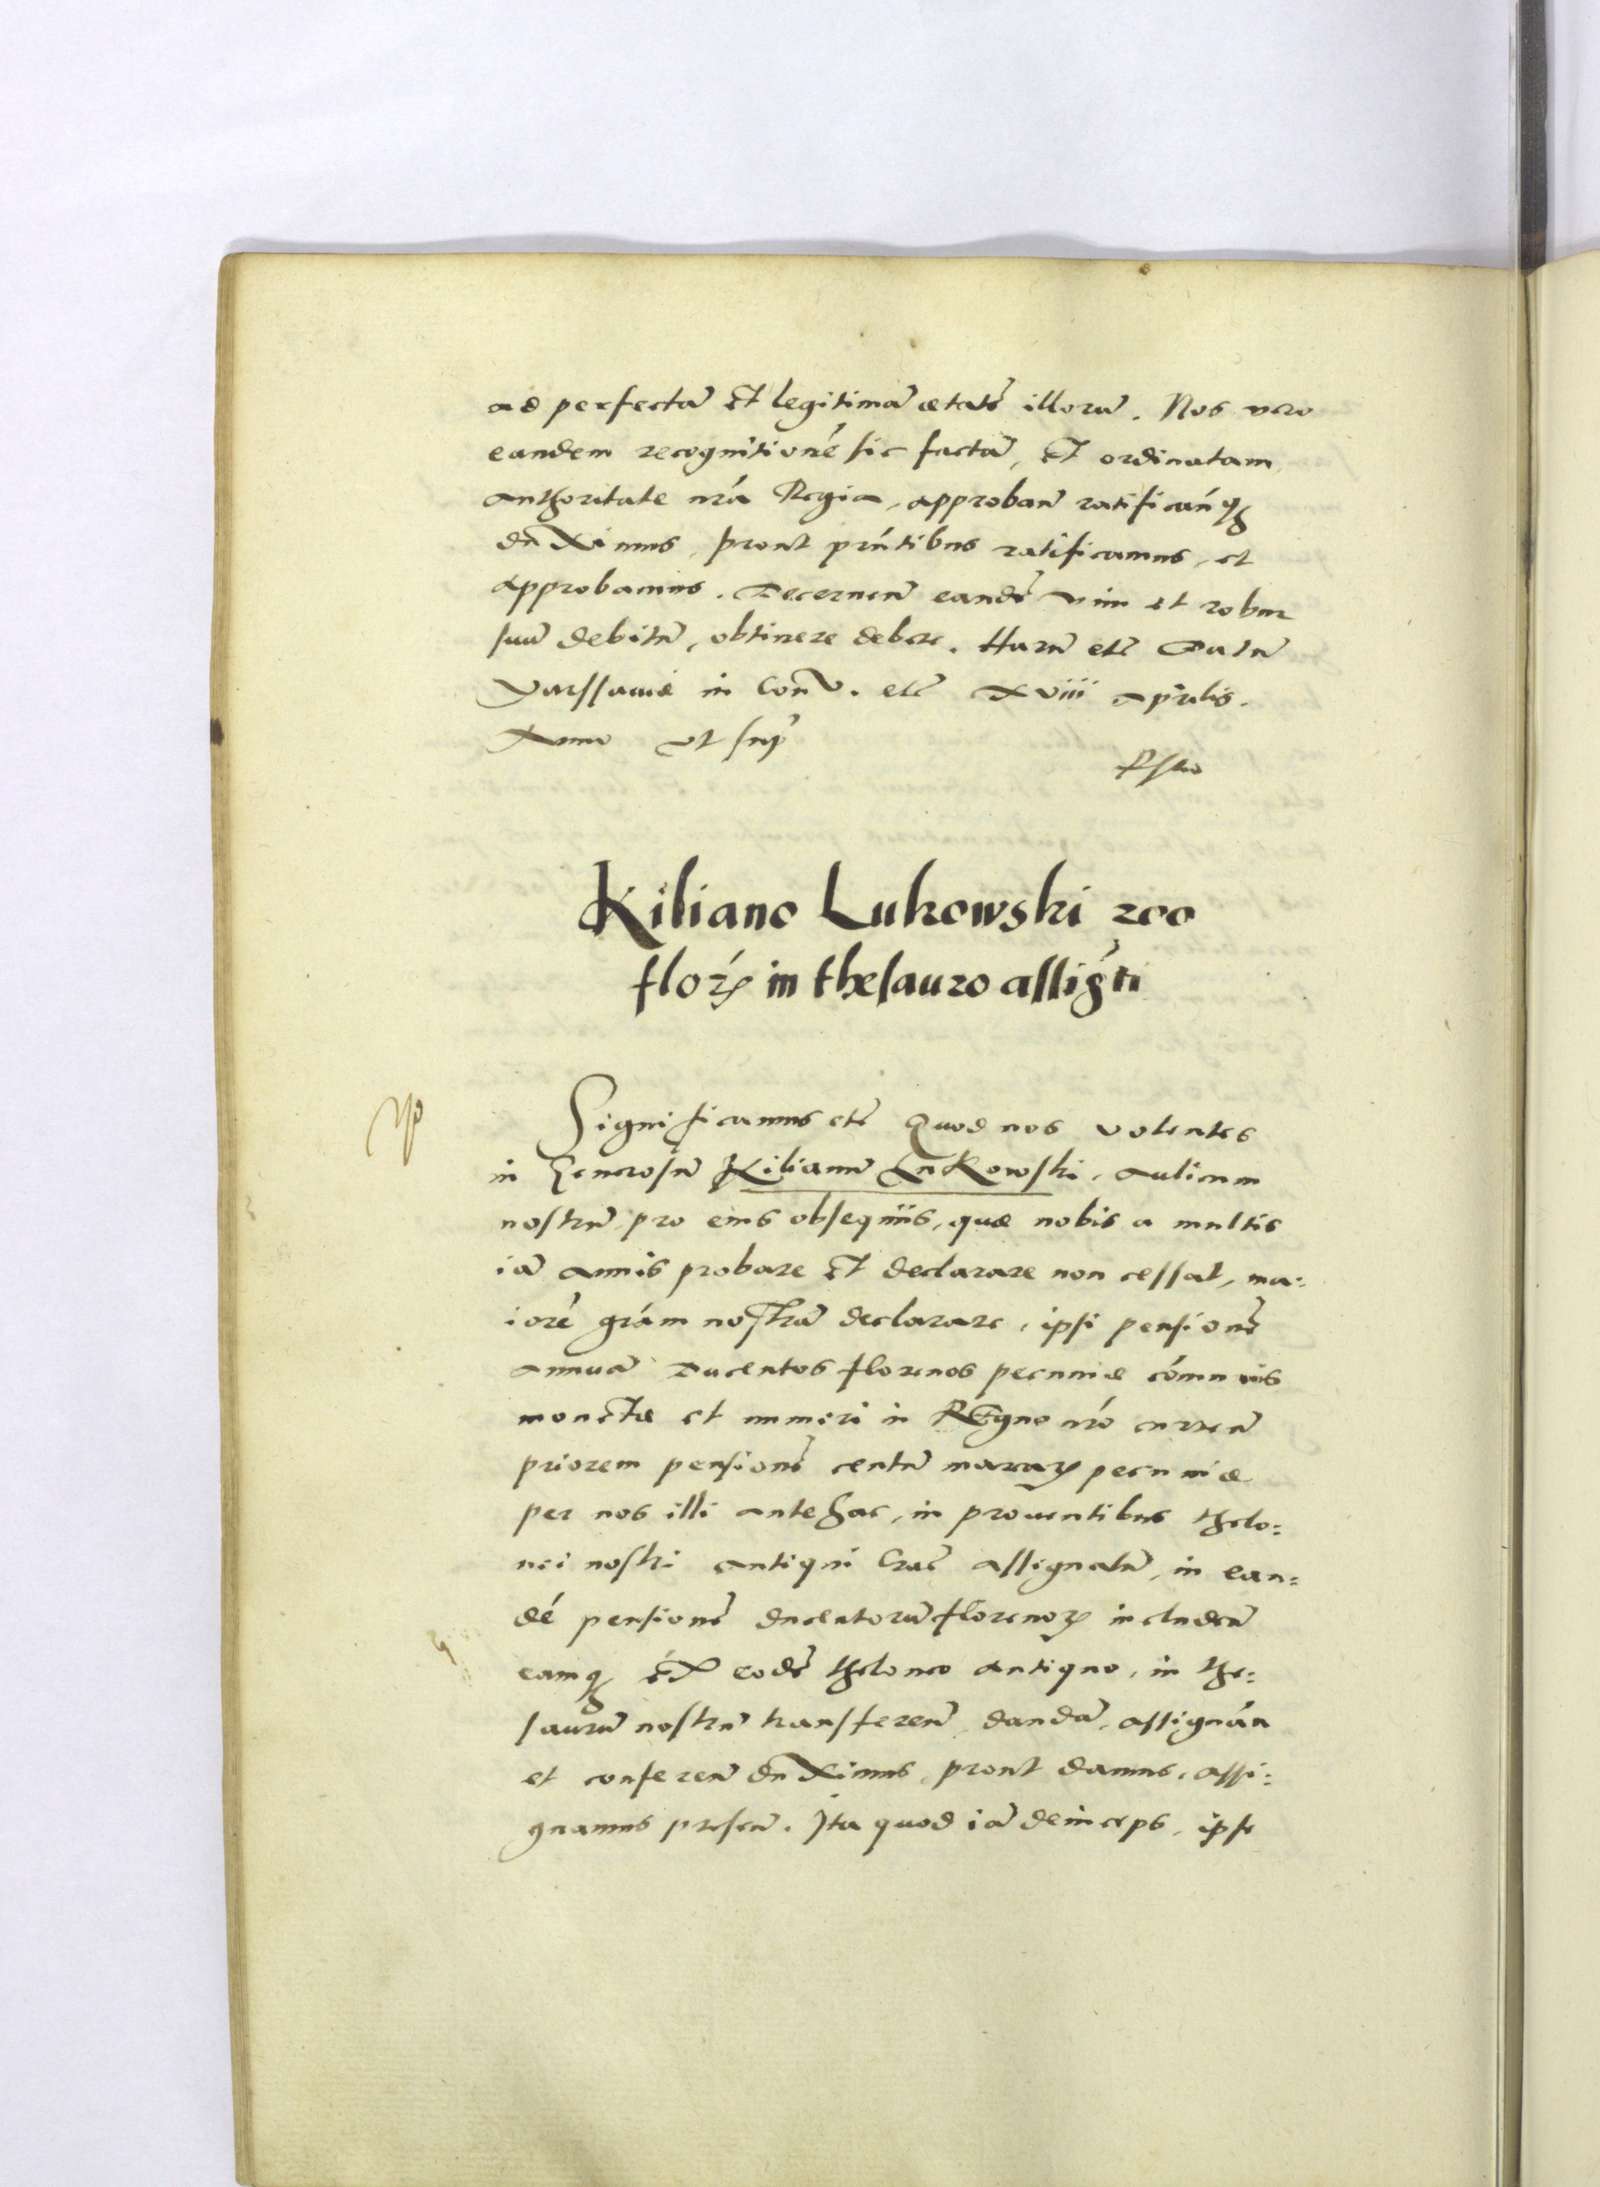 ad perfectā et legitimā ætatē illorū. Nos vero
eandem recognitionē sic factā, et ordinatam
authoritate nrā Regia, approbanꝭ ratificanꝭqꝫ
duximus, prout pn̄tibus ratificamus, et
approbamus. Decernenꝭ eandē vim et robur
suū debitū, obtinere debere. Harū etc̄ Datū
Varssauiæ in Conv̄. etc̄ xviii aprilis.
Anno vt sup̄
Kiliano Lukowski 200
florꝝ in thesauro assignti
Significamus etc̄ Quod nos volentes
in Generosū Kilianū Lukowski, aulicum
nostrū pro eius obsequiis, quæ nobis a multis
iā annis probare et declarare non cessat, ma:
iorē grām nostrā declarare, ipsi pensionē
annuā Ducentos florenos pecuniæ cōmunis
monetæ et numeri in Regno nrō currenꝭ
priorem pensionē centū marcarꝝ pecuniæ
per nos illi antehac, in prouentibus thelo:
nei nostri antiqui Crac̄ assignatā, in ean:
dē pensionē ducentorū florenorꝝ includenꝭ
eamqꝫ ex eodē theloneo antiquo, in the:
saurū nostrū transferenꝭ, dandā, assignanꝭ
et conferenꝭ duximus, prout damus, assi:
gnamus presenꝭ. Ita quod iā deinceps, ipse